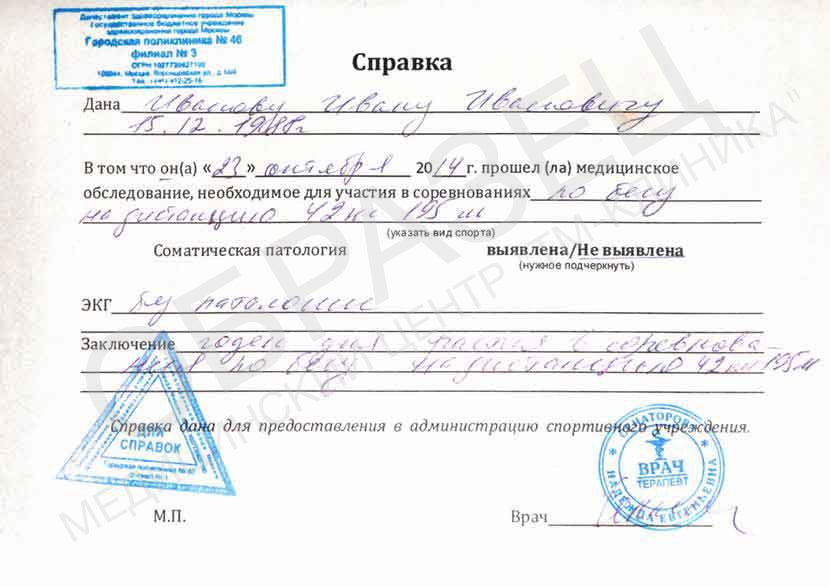 Департамент здравоохранения города Москвы
Государственное бюджетное учреждение
здравоохранения города Москвы
Городская поликлиника № 46
филиал № 3
Справка
Дана Иванову Ивану Ивановичу
15.12.1988г
В том что он(а) «23» октября 2014 г. прошел (ла) медицинское
обследование, необходимое для участия в соревнованиях по бегу
на дистанцию 42 км 195 м
(указать вид спорта)
Соматическая патология выявлена/Не выявлена
(нужное подчеркнуть)
ЭКГ без паталогии
Заключение годен для участия в соревнова-
ниях по бегу на дистанцию 42 км 195 м
Справка дана для предоставления в администрацию спортивного учреждения.
ДЛЯ
СПРАВОК
Городская поликлиника № 46
ВРАЧ
ТЕРАПЕВТ
НАДЕЖДА ЕВГЕНЬЕВНА
М.П. Врач
ОБРАЗЕЦ
МЕДИЦИНСКИЙ ЦЕНТР